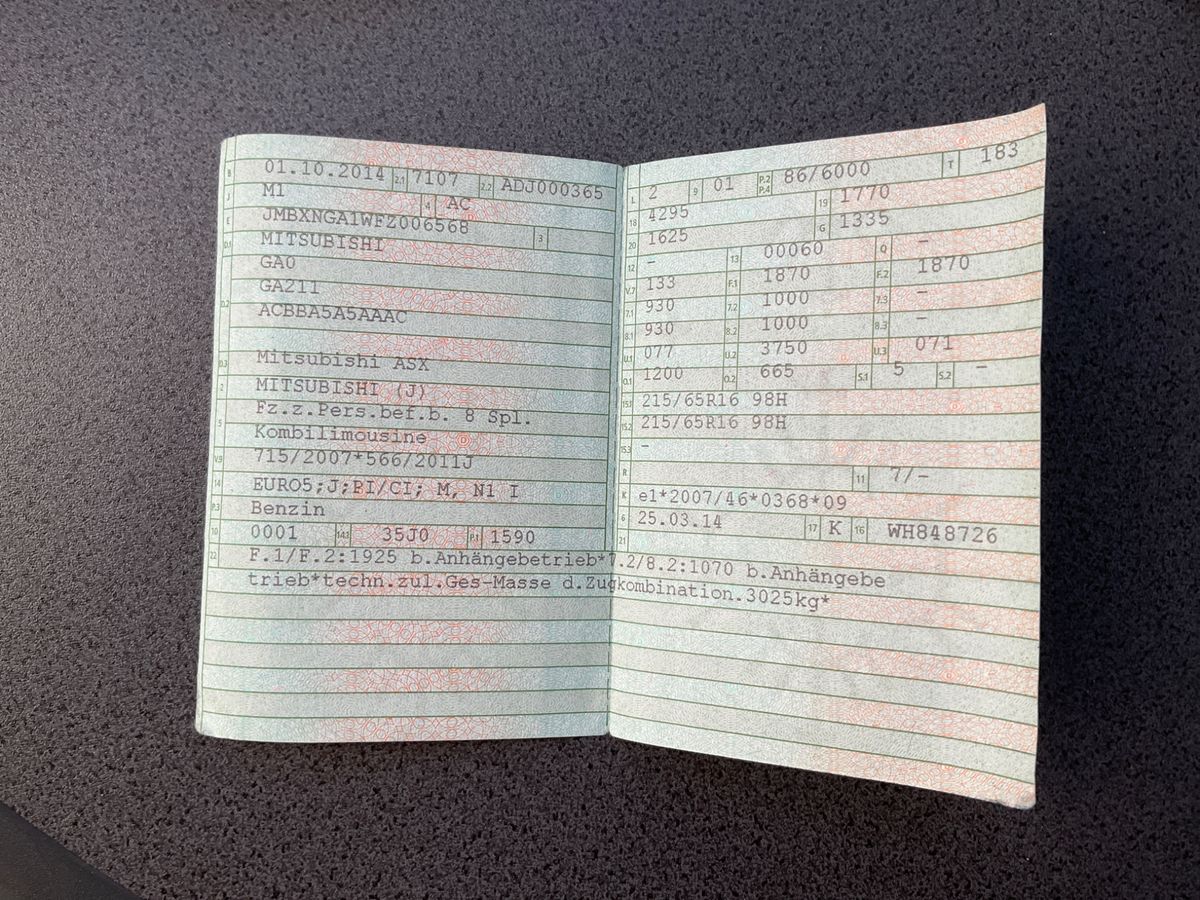 B 01.10.2014 2.1 7107 2.2 ADJ000365
J M1 4 AC
E JMBXNGA1WFZ006568 3
D.1 MITSUBISHI
GA0
GA211
D.2 ACBBA5A5AAAC
D.3 Mitsubishi ASX
2 MITSUBISHI (J)
5 Fz.z.Pers.bef.b. 8 Spl.
Kombilimousine
V.9 715/2007*566/2011J
14 EURO5;J;PI/CI; M, N1 I
P.3 Benzin
10 0001 14.1 35J0 P.1 1590
L 2 9 01 P.2 P.4 86/6000 T 183
18 4295 19 1770
20 1625 G 1335
12 - 13 00060 Q -
V.7 133 F.1 1870 F.2 1870
7.1 930 7.2 1000 7.3 -
8.1 930 8.2 1000 8.3 -
U.1 077 U.2 3750 U.3 071
O.1 1200 O.2 665 S.1 5 S.2 -
15.1 215/65R16 98H
15.2 215/65R16 98H
15.3 -
R 11 7/-
K e1*2007/46*0368*09
6 25.03.14 17 K 16 WH848726
21
22 F.1/F.2:1925 b.Anhängebetrieb*7.2/8.2:1070 b.Anhängebe
trieb*techn.zul.Ges-Masse d.Zugkombination.3025kg*